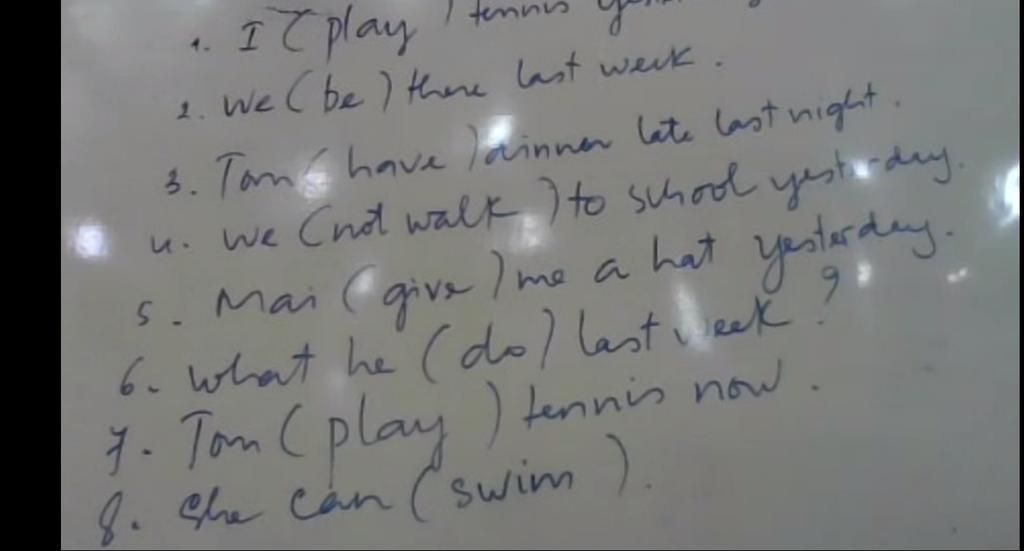 1. I (play ) tennis yesterday
2. We (be) there last week.
3. Tom ( have ) dinner late last night.
4. We (not walk ) to school yesterday.
5. Mai ( give ) me a hat yesterday.
6. What he (do) last week ?
7. Tom ( play ) tennis now.
8. She can (swim ).